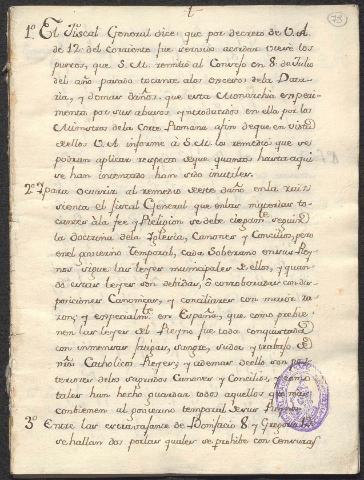 1
(73)
1º El Fiscal General dice: que por decreto de V. A.
de 12 del corriente fue servido acordar viese los
puntos, que S. M. remitió al Consejo en 8 de Julio
del año pasado tocante a los excesos de la Data-
ria, y demas daños, que esta Monarchia experi-
menta por sus abusos introducidos en ella por los
Ministros de la Corte Romana a fin de que en vista
de ellos V. A. informe á S. M. los remedios que se
podran aplicar respecto de que quantos hasta aqui
se han intentado han sido inutiles.
2º Y para ocurrir al remedio de este daño en la raiz
sienta el fiscal General que en las materias to-
cantes à la fee y Religion se debe ciegamte seguir
la Doctrina de la Iglesia, Canones y Concilios, pero
en el govierno temporal, cada Soberano en sus Rey-
nos sigue las leyes municipales de ellos, y quan-
do estas leyes son debidas, ó corroboradas con dis-
posiciones Canonicas, y conciliares con maior ra-
zon; y especialmte en España, que como previe-
nen las leyes del Reyno fue toda conquistada
con inmensas fatigas, sangre, sudor y trabajo de
ntrõs Catholicos Reyes; y ademas de ello son pro-
tectores de los sagrados Canones y Concilios, y como
tales han hecho guardar todos aquellos que mas
contienen al govierno temporal de sus Reynos.
3º Entre las extravagantes de Bonifacio 8 y Gregorio
se hallan dos por las quales se prohibe con Censuras